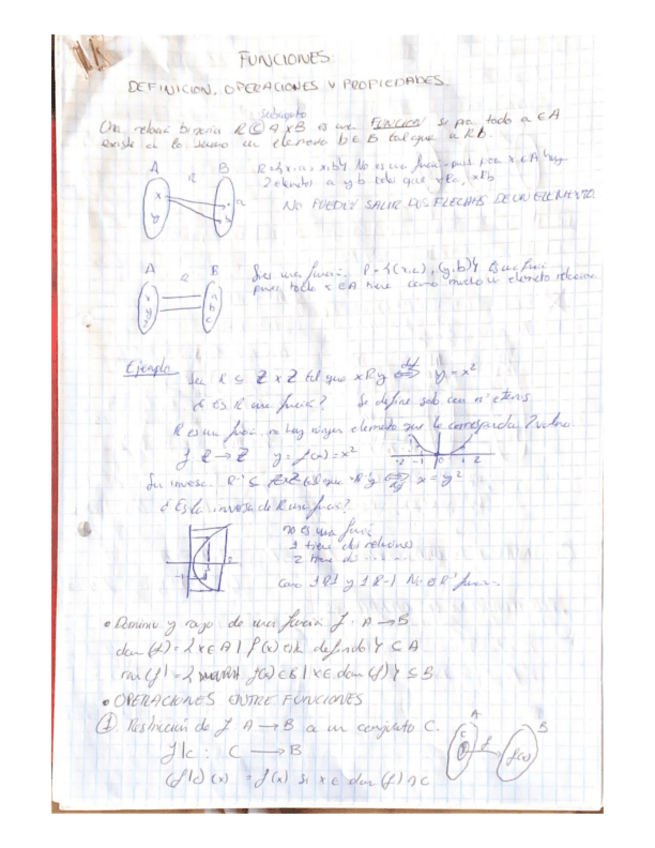 FUNCIONES
DEFINICION, OPERACIONES Y PROPIEDADES.
subconjunto
Una relación binaria R ⊆ A x B es una FUNCION si para todo a ∈ A
existe a lo sumo un elemento b ∈ B tal que a R b.
A B
R
x a
y b
No es una función pues para x ∈ A hay
2 elementos a y b tales que xRa, xRb
NO PUEDEN SALIR DOS FLECHAS DE UN ELEMENTO.
A B
R
x a
y b
z c
Si es una función. R = {(x,a), (y,b)} Es una función
pues todo x ∈ A tiene como mucho un elemento relacion.
Ejemplo
Sea R ⊆ Z x Z tal que x R y ⟺ y = x²
¿Es R una función? Se define sob con nº enteros
R es una función, no hay ningún elemento que le corresponda 2 valores.
f Z → Z y = f(x) = x²
-2 -1 0 1 2
Su inversa R⁻¹ ⊆ Z x Z tal que x R⁻¹ y ⟺ x = y²
¿Es la inversa de R una función?
no es una función
1 tiene dos relaciones
2 tiene dos
-1
Como 1R1 y 1R-1 No es R⁻¹ función.
• Dominio y rango de una función f: A → B
dom (f) = {x ∈ A | f(x) está definido} ⊆ A
ran (f) = { f(x) ∈ B | x ∈ dom (f)} ⊆ B
• OPERACIONES ENTRE FUNCIONES
①. Restricción de f A → B a un conjunto C.
A B
C f f(x)
f|c : C → B
(f|c) (x) = f(x) si x ∈ dom (f) ∩ C